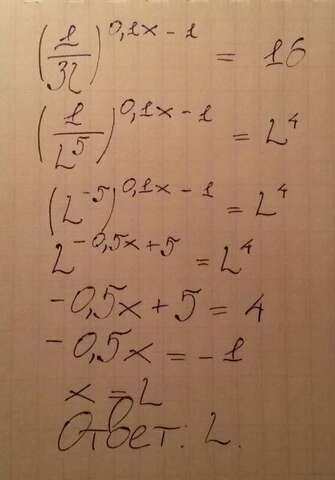 (1/32)^(0,1x - 1) = 16
(1/2^5)^(0,1x - 1) = 2^4
(2^-5)^(0,1x - 1) = 2^4
2^(-0,5x + 5) = 2^4
-0,5x + 5 = 4
-0,5x = -1
x = 2
Ответ: 2.